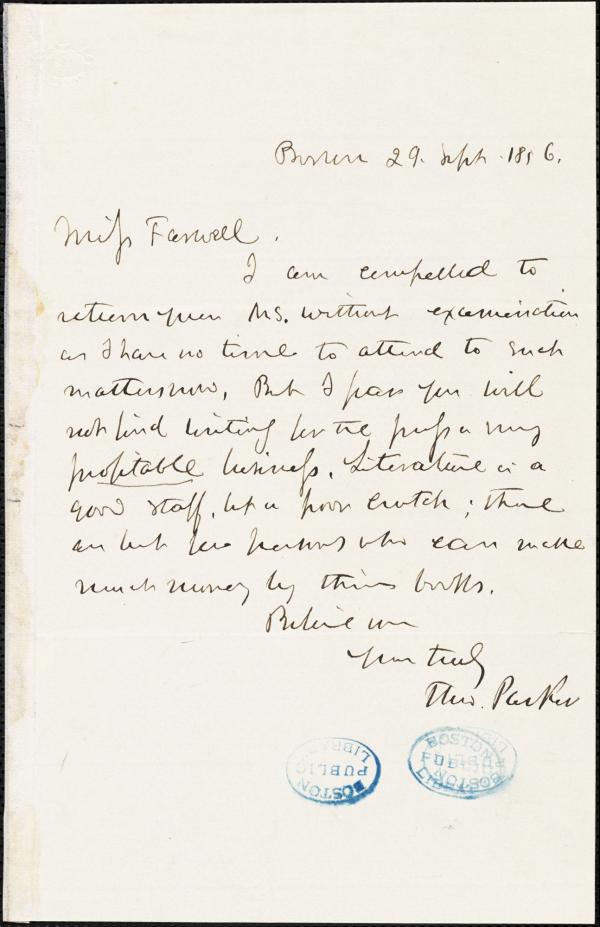 Boston 29. Sept. 1856.
Miss Farwell.
I am compelled to
return your MS. without examination
as I have no time to attend to such
matters now, But I fear you will
not find writing for the press a very
profitable business. Literature is a
good staff, but a poor crutch; there
are but few persons who can make
much money by their books.
Believe me
Yours truly
Theo. Parker
BOSTON
PUBLIC
LIBRARY
BOSTON
PUBLIC
LIBRARY